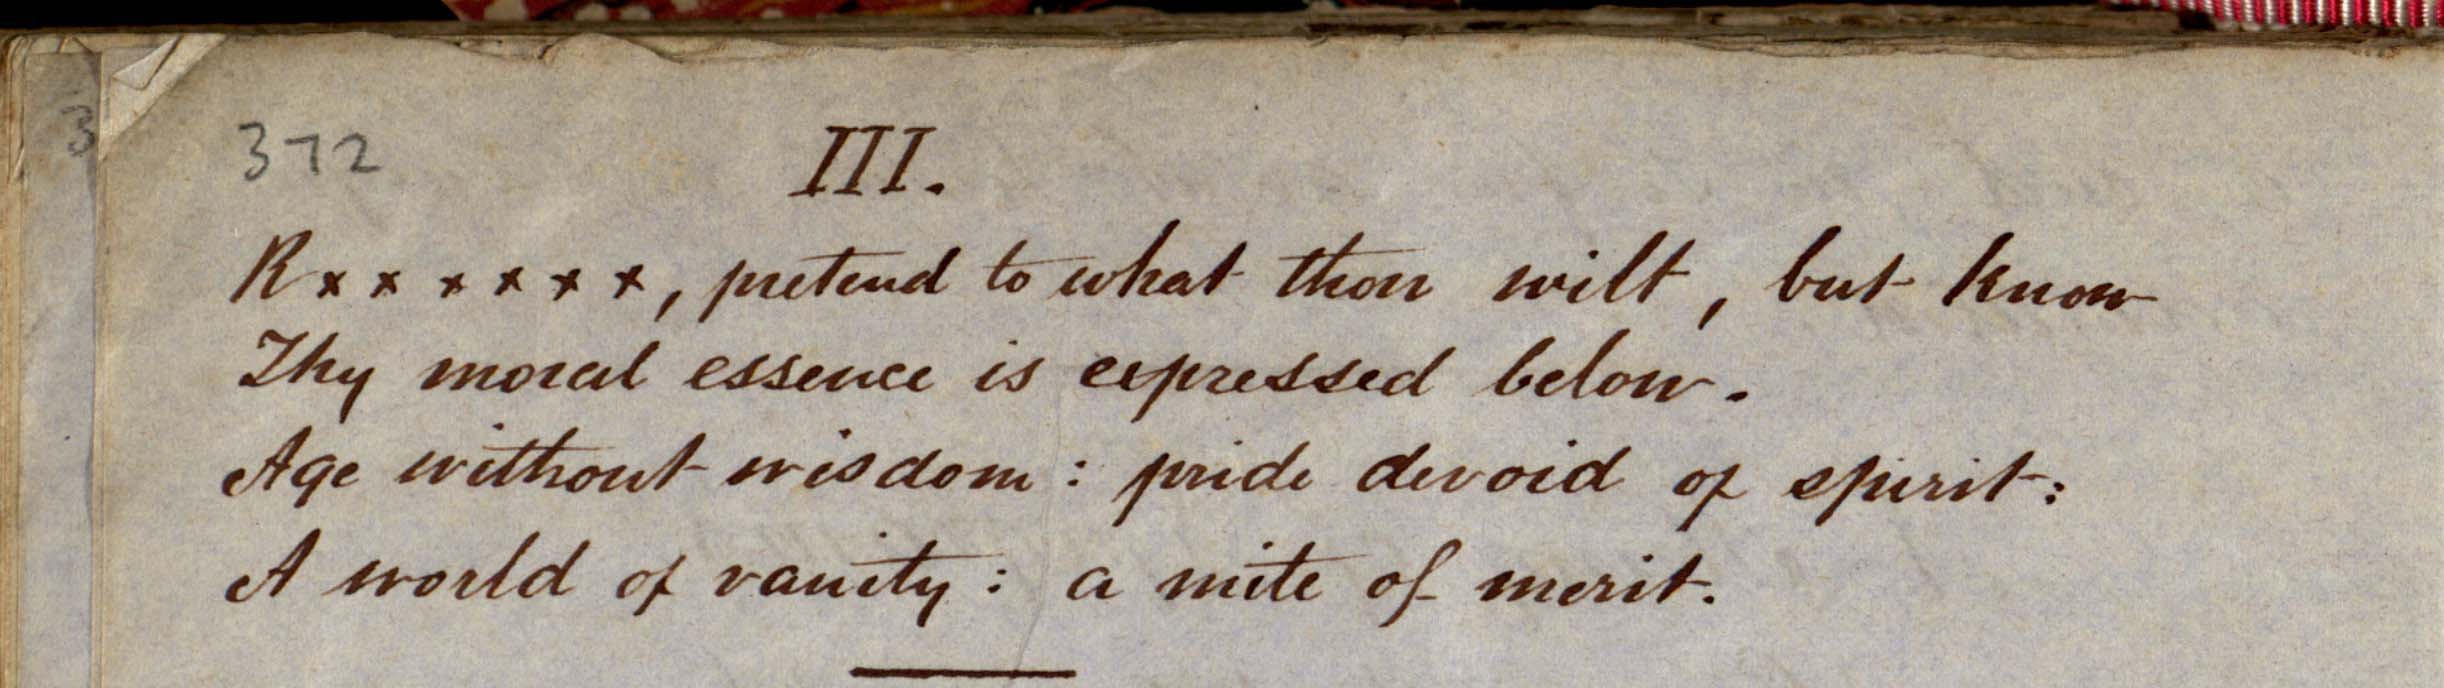 3
372
III.
R × × × × × ×, pretend to what thou wilt, but know
Thy moral essence is expressed below.
Age without wisdom : pride devoid of spirit :
A world of vanity : a mite of merit.